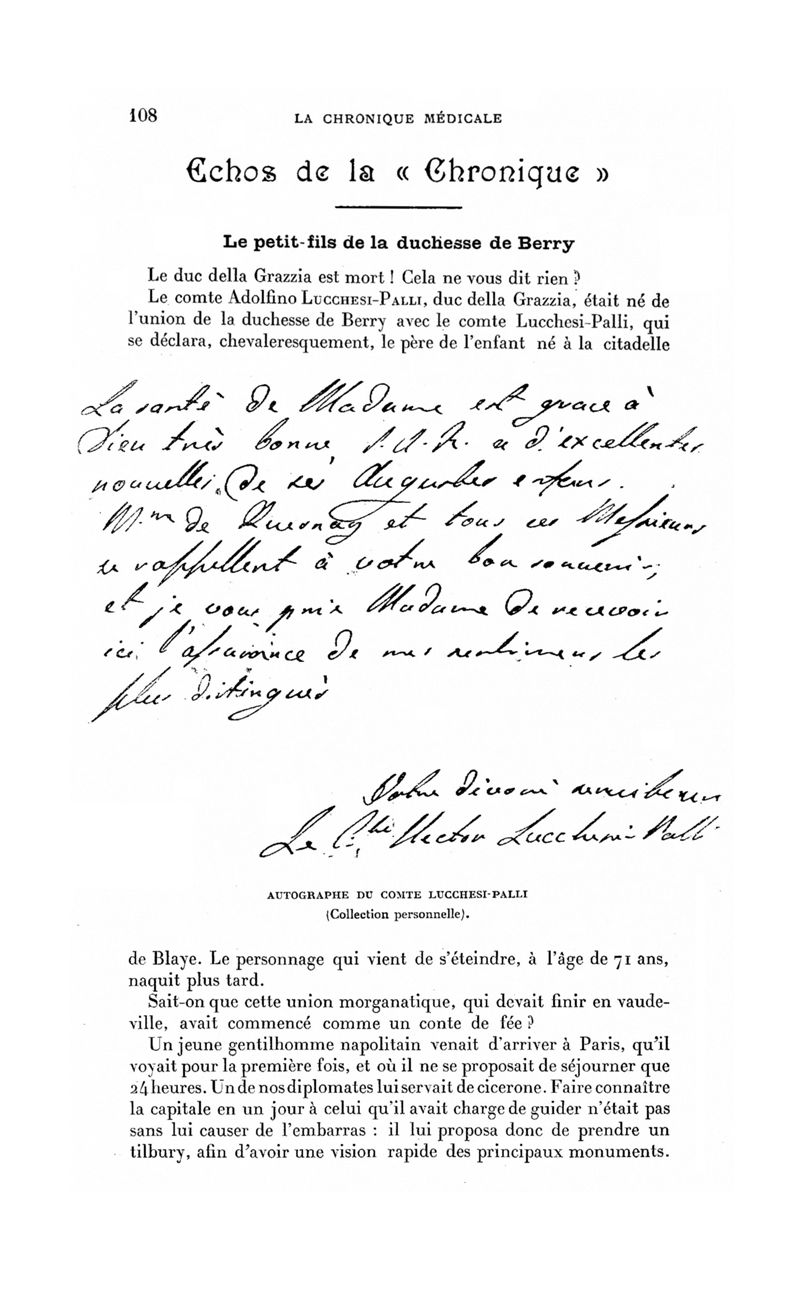 108
LA CHRONIQUE MÉDICALE
Echos de la « Chronique »
Le petit-fils de la duchesse de Berry
Le duc della Grazzia est mort ! Cela ne vous dit rien ?
Le comte Adolfino LUCCHESI-PALLI, duc della Grazzia, était né de
l'union de la duchesse de Berry avec le comte Lucchesi-Palli, qui
se déclara, chevaleresquement, le père de l'enfant né à la citadelle
La santé de Madame est grace à
Dieu très bonne S.A.R. a d'excellentes
nouvelles de ses Augustes enfans.
M.me de et tous ces Messieurs
se rappellent à votre bon souvenir,
et je vous prie Madame de recevoir
ici l'assurance de mes sentimens les
plus distingués
Votre dévoué serviteur
Le Cte Hector Lucchesi-Palli
AUTOGRAPHE DU COMTE LUCCHESI-PALLI
(Collection personnelle).
de Blaye. Le personnage qui vient de s'éteindre, à l'âge de 71 ans,
naquit plus tard.
Sait-on que cette union morganatique, qui devait finir en vaude-
ville, avait commencé comme un conte de fée ?
Un jeune gentilhomme napolitain venait d'arriver à Paris, qu'il
voyait pour la première fois, et où il ne se proposait de séjourner que
24 heures. Un de nos diplomates lui servait de cicerone. Faire connaître
la capitale en un jour à celui qu'il avait charge de guider n'était pas
sans lui causer de l'embarras : il lui proposa donc de prendre un
tilbury, afin d'avoir une vision rapide des principaux monuments.